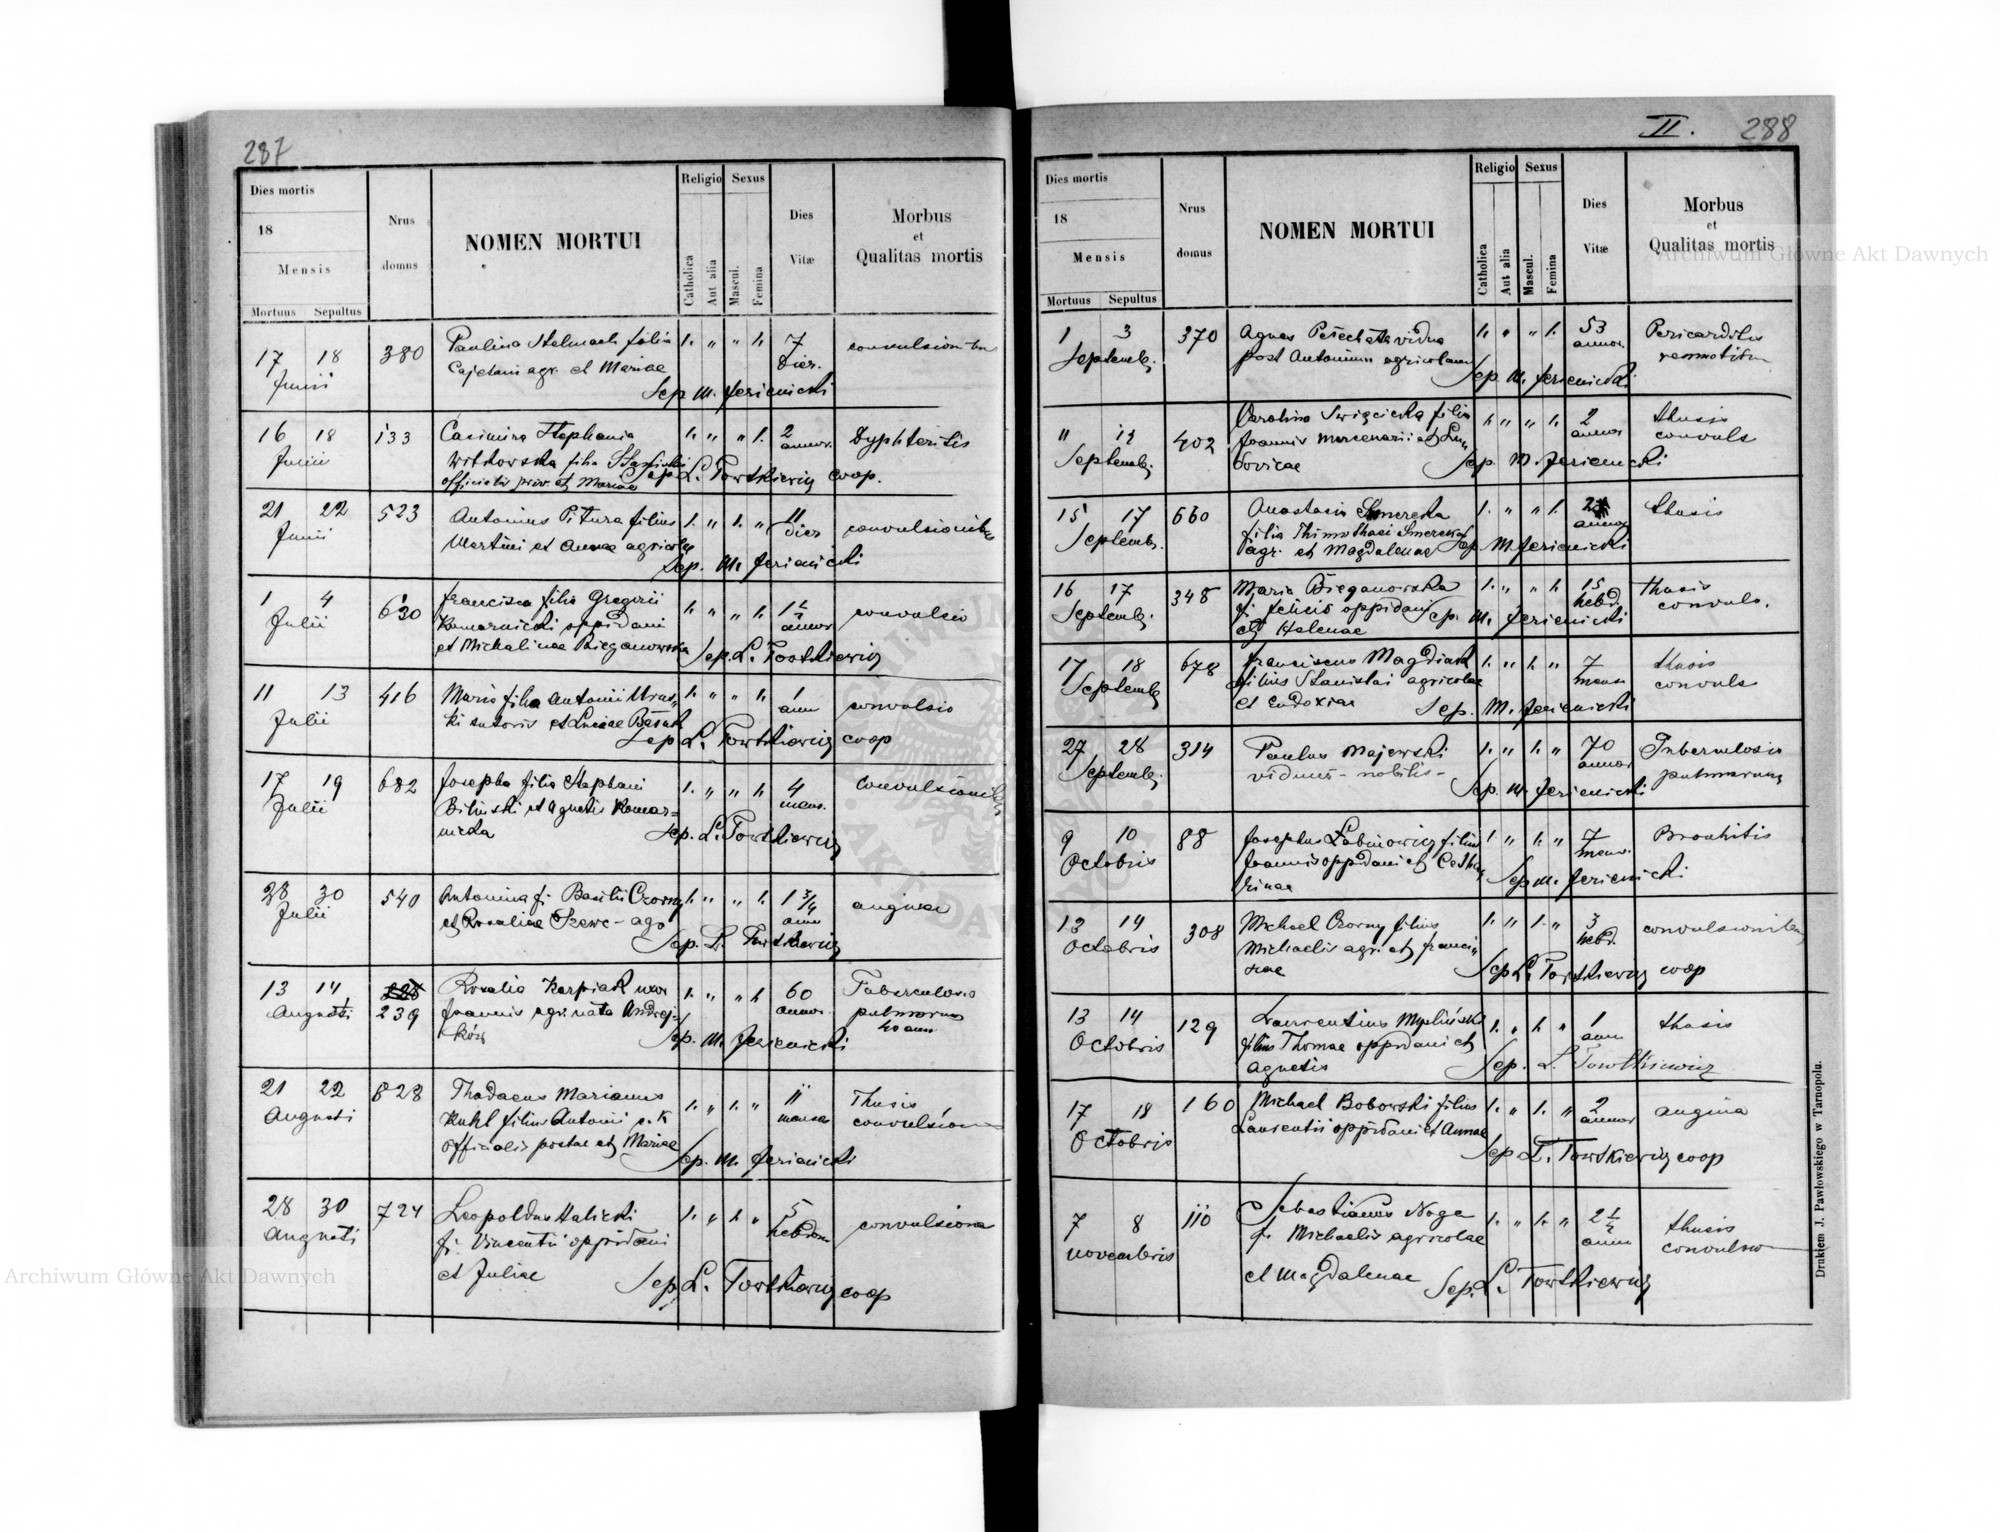 287
Dies mortis
18
Mensis
Mortuus Sepultus
Nrus
domus
NOMEN MORTUI
Religio
Catholica
Aut alia
Sexus
Mascul.
Femina
Dies
Vitæ
Morbus
et
Qualitas mortis
17 18 380 Paulina Stelmach filia 1. " " 1. 7
Junii Cajetani agr. et Mariae Dier.
Sep. M. Jezienicki
16 18 133 Casimira Stephania 1. " " 1. 2 Dyphteritis
Junii Witkowska filia annor.
officialis priv. et Mariae Sep. L. Towtkiewicz coop.
21 22 523 Antonius Pitura filius 1. " 1. " 11
Junii Martini et Annae agricolae dier convulsionibus
Sep. M. Jezienicki
1 4 630 Francisca filia Gregorii 1. " " 1. 1 1/2 convulsio
Julii Komarnicki oppidani annor
et Michalinae Bieganowska Sep. L. Towtkiewicz
11 13 416 Maria filia Antonii 1. " " 1. 1 convulsio
Julii ki sutoris et Luciae ann
Sep. L. Towtkiewicz coop
17 19 682 Josepha filia Stephani 1. " " 1. 4 convulsionibus
Julii Bilinski et Agnetis Komar- mens.
nicka Sep. L. Towtkiewicz
28 30 540 Antonina f. Basilii Czorny 1. " " 1. 1 3/4 anginae
Julii et Rosaliae Szewc - agr ann
Sep. L. Towtkiewicz
13 14 239 Rosalia Karpiak uxor 1. " " 1. 60 Tuberculosis
Augusti Joannis agr. nata Andrej- annor. pulmonum
ków Sep. M. Jezienicki
21 22 828 Thadaeus Marianus 1. " 1. " 11 Thusis
Augusti Kuhl filius Antonii c. k. menses convulsiva
officialis postae et Mariae Sep. M. Jezienicki
28 30 724 Leopoldus Halicki 1. " 1. " 5 convulsiona
Augusti f. Vincentii oppidani hebdom
et Juliae Sep. L. Towtkiewicz coop
II. 288
Dies mortis
18
Mensis
Mortuus Sepultus
Nrus
domus
NOMEN MORTUI
Religio
Catholica
Aut alia
Sexus
Mascul.
Femina
Dies
Vitæ
Morbus
et
Qualitas mortis
1 3 370 Agnes vidua 1. " " 1. 53 Pericarditis
Septemb. post Antonium agricolam annor.
Sep. M. Jezienicki
11 12 402 Carolina Swięcicka filia 1. " " 1. 2 thusis
Septemb. Joannis mercenarii et Lu- annor convuls
dovicae Sep. M. Jezienicki
15 17 660 Anastasia Smereka 1. " " 1. thusis
Septemb. filia Thimothaei Smereka annor
agr. et Magdalenae Sep. M. Jezienicki
16 17 348 Maria Bieganowska 1. " " 1. 15 thusis
Septemb. f. Felicis oppidani hebd. convuls.
et Helenae Sep. M. Jezienicki
17 18 678 Franciscus Magdiak 1. " 1. " 7 thusis
Septemb filius Stanislai agricolae mens convuls
et Eudoxiae Sep. M. Jezienicki
27 28 314 Paulus Majewski 1. " 1. " 70 Tuberculosis
Septemb. viduus - nobilis - annor pulmonum
Sep. M. Jezienicki
9 10 88 Josephus Labinowicz filius 1. " 1. " 7 Bronhitis
Octobris Joannis oppidani et Catha mens.
rinae Sep. M. Jezienicki
13 14 308 Michael Czorny filius 1. " 1. " 3 convulsionibus
Octobris Michaelis agr. et Franci- hebd.
scae Sep. L. Towtkiewicz coop
13 14 129 Laurentius Mysliński 1. " 1. " 1 thusis
Octobris filius Thomae oppidani et ann
Agnetis Sep. L. Towtkiewicz
17 18 160 Michael Bobowski filius 1. " 1. " 2 angina
Octobris Laurentii oppidani et Annae annor
Sep. L. Towtkiewicz coop
7 8 110 Sebastianus Noga 1. " 1. " 2 1/2 thusis
novembris f. Michaelis agricolae annor convulsiva
et Magdalenae Sep. L. Towtkiewicz
Drukiem J. Pawłowskiego w Tarnopolu.
Archiwum Główne Akt Dawnych
Archiwum Główne Akt Dawnych